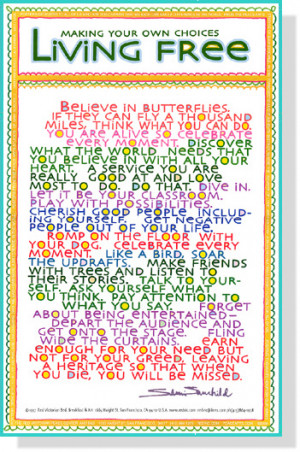 MAKING YOUR OWN CHOICES
LIVING FREE
BELIEVE IN BUTTERFLIES.
IF THEY CAN FLY A THOUSAND
MILES, THINK WHAT YOU CAN DO.
YOU ARE ALIVE SO CELEBRATE
EVERY MOMENT. DISCOVER
WHAT THE WORLD NEEDS THAT
YOU BELIEVE IN WITH ALL YOUR
HEART. A SERVICE YOU ARE
REALLY GOOD AT AND LOVE
MOST TO DO. DO THAT. DIVE IN.
LET IT BE YOUR CLASSROOM.
PLAY WITH POSSIBILITIES.
CHERISH GOOD PEOPLE, INCLUD-
ING YOURSELF. GET NEGATIVE
PEOPLE OUT OF YOUR LIFE.
ROMP ON THE FLOOR WITH
YOUR DOG. CELEBRATE EVERY
MOMENT. LIKE A BIRD, SOAR
THE UPDRAFTS. MAKE FRIENDS
WITH TREES AND LISTEN TO
THEIR STORIES. TALK TO YOUR-
SELF. ASK YOURSELF WHAT
YOU THINK. PAY ATTENTION TO
WHAT YOU SAY. FORGET
ABOUT BEING ENTERTAINED—
DEPART THE AUDIENCE AND
GET ONTO THE STAGE. FLING
WIDE THE CURTAINS. EARN
ENOUGH FOR YOUR NEED BUT
NOT FOR YOUR GREED. LEAVING
A HERITAGE SO THAT WHEN
YOU DIE, YOU WILL BE MISSED.